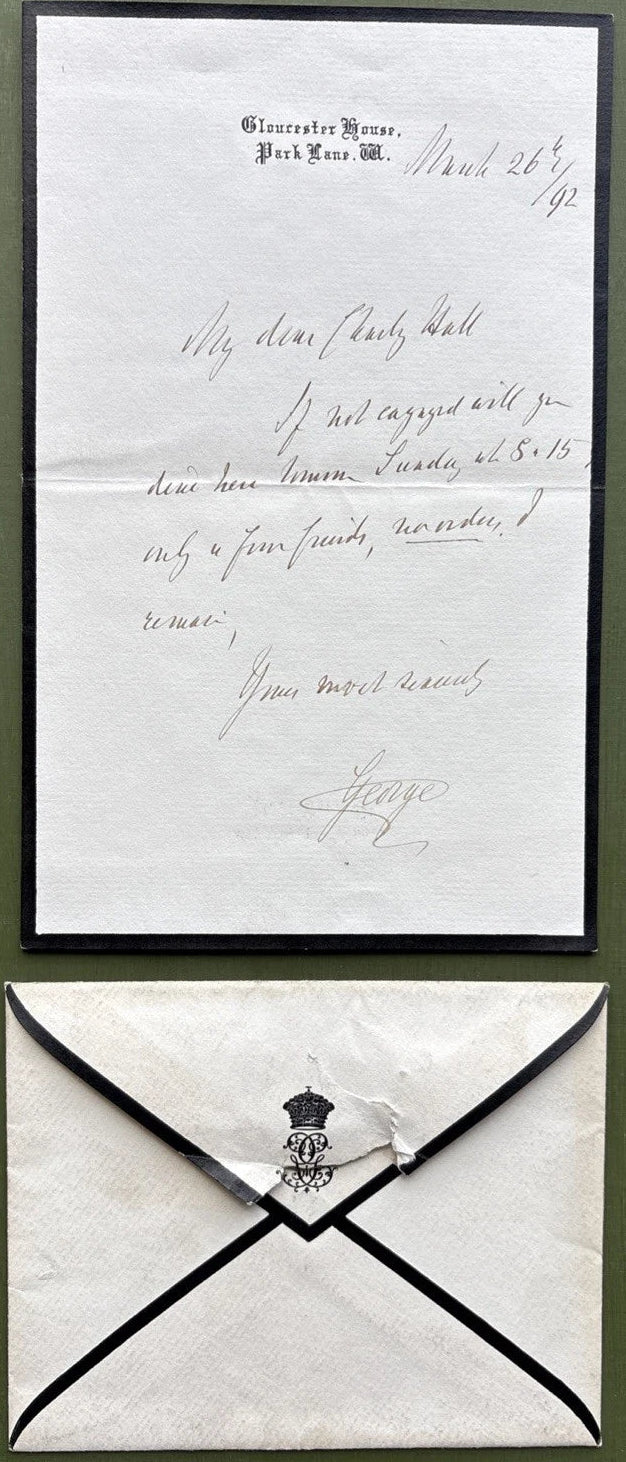 Gloucester House,
Park Lane. W.
March 26th
/92
My dear Charly Hall
If not engaged will you
dine here tomorrow Sunday at 8.15
only a few friends, no orders. I
remain,
Yours most sincerely
George